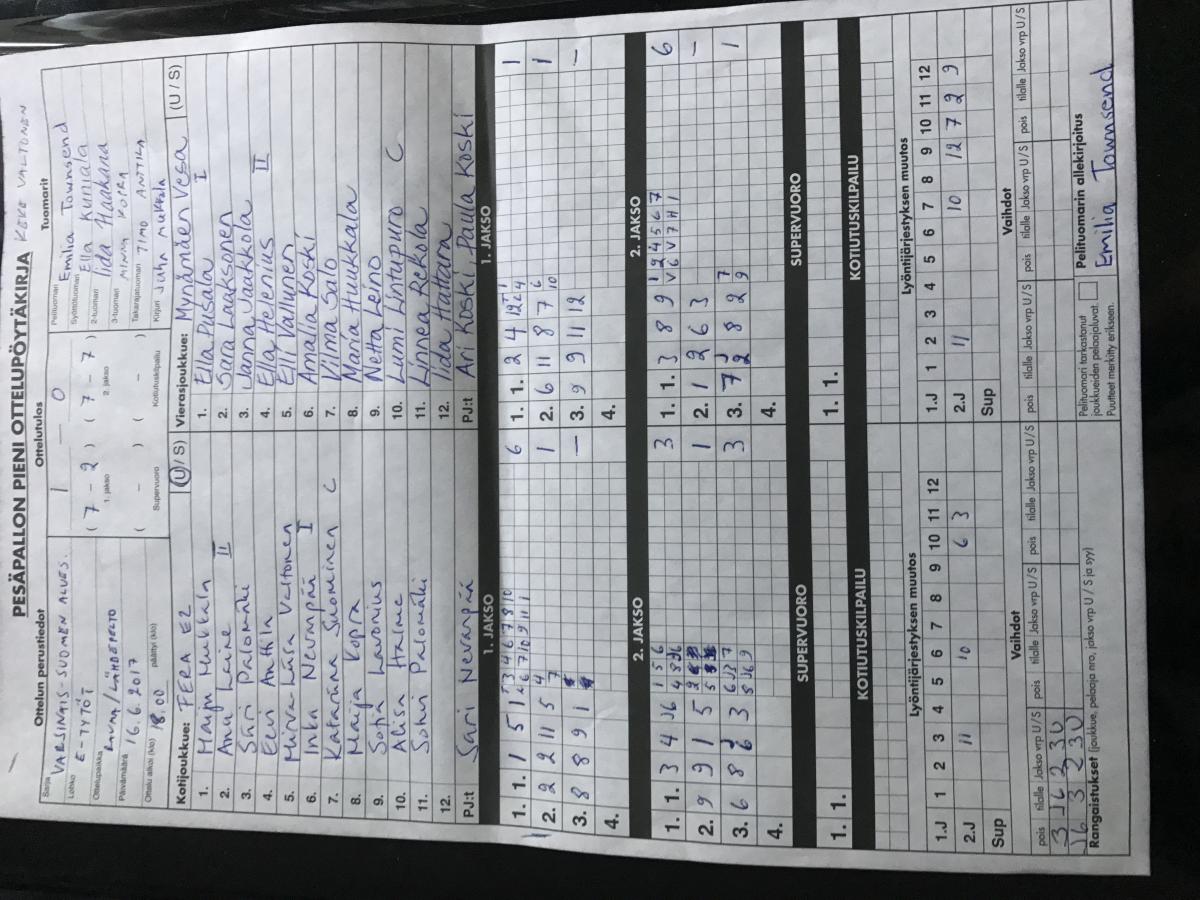 PESÄPALLON PIENI OTTELUPÖYTÄKIRJA KEKE VALTONEN
Ottelun perustiedot
Sarja
VARSINAIS-SUOMEN ALUES.
Lohko
E-TYTÖT
Ottelupaikka
RAUMA/LÄHDEPELTO
Päivämäärä
16.6.2017
Ottelu alkoi (klo) 18.00 päättyi (klo)
Ottelutulos
1 — 0
( 7 - 2 ) ( 7 - 7 )
1. jakso 2. jakso
( - ) ( - )
Supervuoro Kotiutuskilpailu
Tuomarit
Pelituomari Emilia Townsend
Syöttötuomari Ella Kuniala
2-tuomari Iida Haakana
3-tuomari MINNA KOPRA
Takarajatuomari TIMO ANTTILA
Kirjuri Juha Mukkala
Kotijoukkue: FERA E2 (U / S)
1. Maiju Mukkala
2. Anna Laine II
3. Sari Palomäki
4. Eevi Anttila
5. Minva-Liisa Valtonen
6. Inka Nevanpää I
7. Katariina Suominen C
8. Maija Kopra
9. Sofia Lavonius
10. Alisa Halme
11. Sohvi Palomäki
12.
PJ:t Sari Nevanpää
Vierasjoukkue: Mynämäen Vesa (U / S)
1. Ella Pusa I
2. Sara Laaksonen
3. Janna Jaakkola
4. Ella Helenius II
5. Elli Vallunen
6. Amalia Koski
7. Vilma Salo
8. Maria Huukkala
9. Netta Leino
10. Lumi Lintupuro C
11. Linnea Rekola
12. Iida Hattara
PJ:t Ari Koski Paula Koski
1. JAKSO
1. 1. 1 5 1 6
2. 2 2 11 5 1
3. 8 8 9 1 —
4.
1. JAKSO
1. 1. 2 4 12 1
2. 6 11 8 7 1
3. 9 9 11 12 —
4.
2. JAKSO
1. 1. 3 4 J6 3
2. 9 9 1 5 1
3. 6 8 6 3 3
4.
2. JAKSO
1. 1. 3 8 9 6
2. 1 2 6 3 —
3. 7 8 2 9 1
4.
SUPERVUORO
1. 1.
SUPERVUORO
1. 1.
KOTIUTUSKILPAILU
KOTIUTUSKILPAILU
Lyöntijärjestyksen muutos
1.J 1 2 3 4 5 6 7 8 9 10 11 12
2.J 11 10 6 3
Sup
Lyöntijärjestyksen muutos
1.J 1 2 3 4 5 6 7 8 9 10 11 12
2.J 11 10 12 7 2 9
Sup
Vaihdot
pois tilalle Jakso vrp U/S pois tilalle Jakso vrp U/S pois tilalle Jakso vrp U/S
3 J6 2 3 U
J6 3 2 3 U
Vaihdot
pois tilalle Jakso vrp U/S pois tilalle Jakso vrp U/S pois tilalle Jakso vrp U/S
Rangaistukset (joukkue, pelaaja nro, jakso vrp U / S ja syy)
Pelituomari tarkastanut
joukkueiden pelaajaluvat.
Puutteet merkitty erikseen.
Pelituomarin allekirjoitus
Emilia Townsend